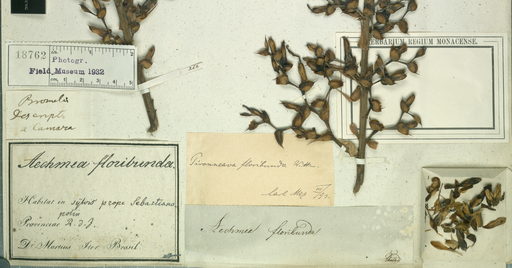 HERBARIUM REGIUM MONACENSE.
18762
Photogr.
Field Museum 1932
Bromelia
Descripta
a camara
Aechmea floribunda.
Habitat in sylvis prope Sebastiano
Provinciae R. d. J.
Dr Martius Iter Brasil.
floribunda
Aechmea floribunda